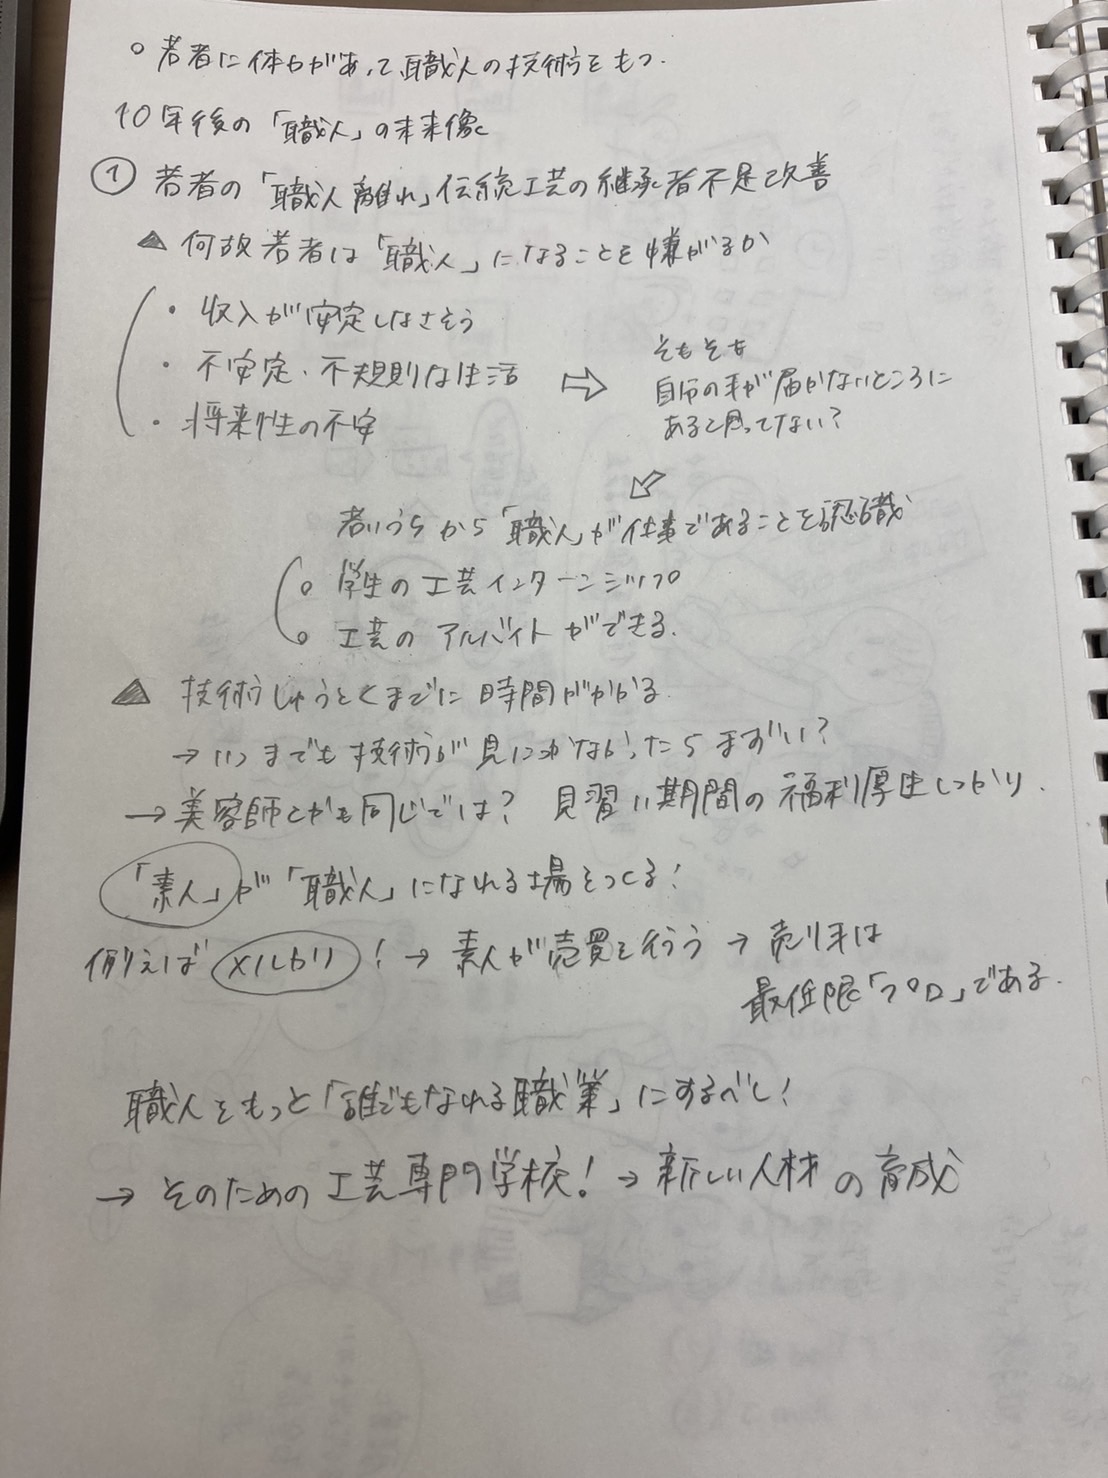 ○ 若者に体力があって職人の技術をもつ.
10年後の「職人」の未来像
① 若者の「職人離れ」伝統工芸の継承者不足改善
▲ 何故若者は「職人」になることを嫌がるか
・収入が安定しなさそう
・不安定、不規則な生活 ⇨
・将来性の不安
そもそも
自分の手が届かないところに
あると思ってない?
若いうちから「職人」が仕事であることを認識
○ 学生の工芸インターンシップ
○ 工芸のアルバイトができる.
▲ 技術しゅうとくまでに時間がかかる.
→いつまでも技術が見につかなかったらまずい?
→美容師とかも同じでは? 見習い期間の福利厚生しっかり.
「素人」が「職人」になれる場をつくる!
例えばメルカリ!→素人が売買を行う→売り手は
最低限「プロ」である.
職人をもっと「誰でもなれる職業」にするべし!
→そのための工芸専門学校!→新しい人材の育成